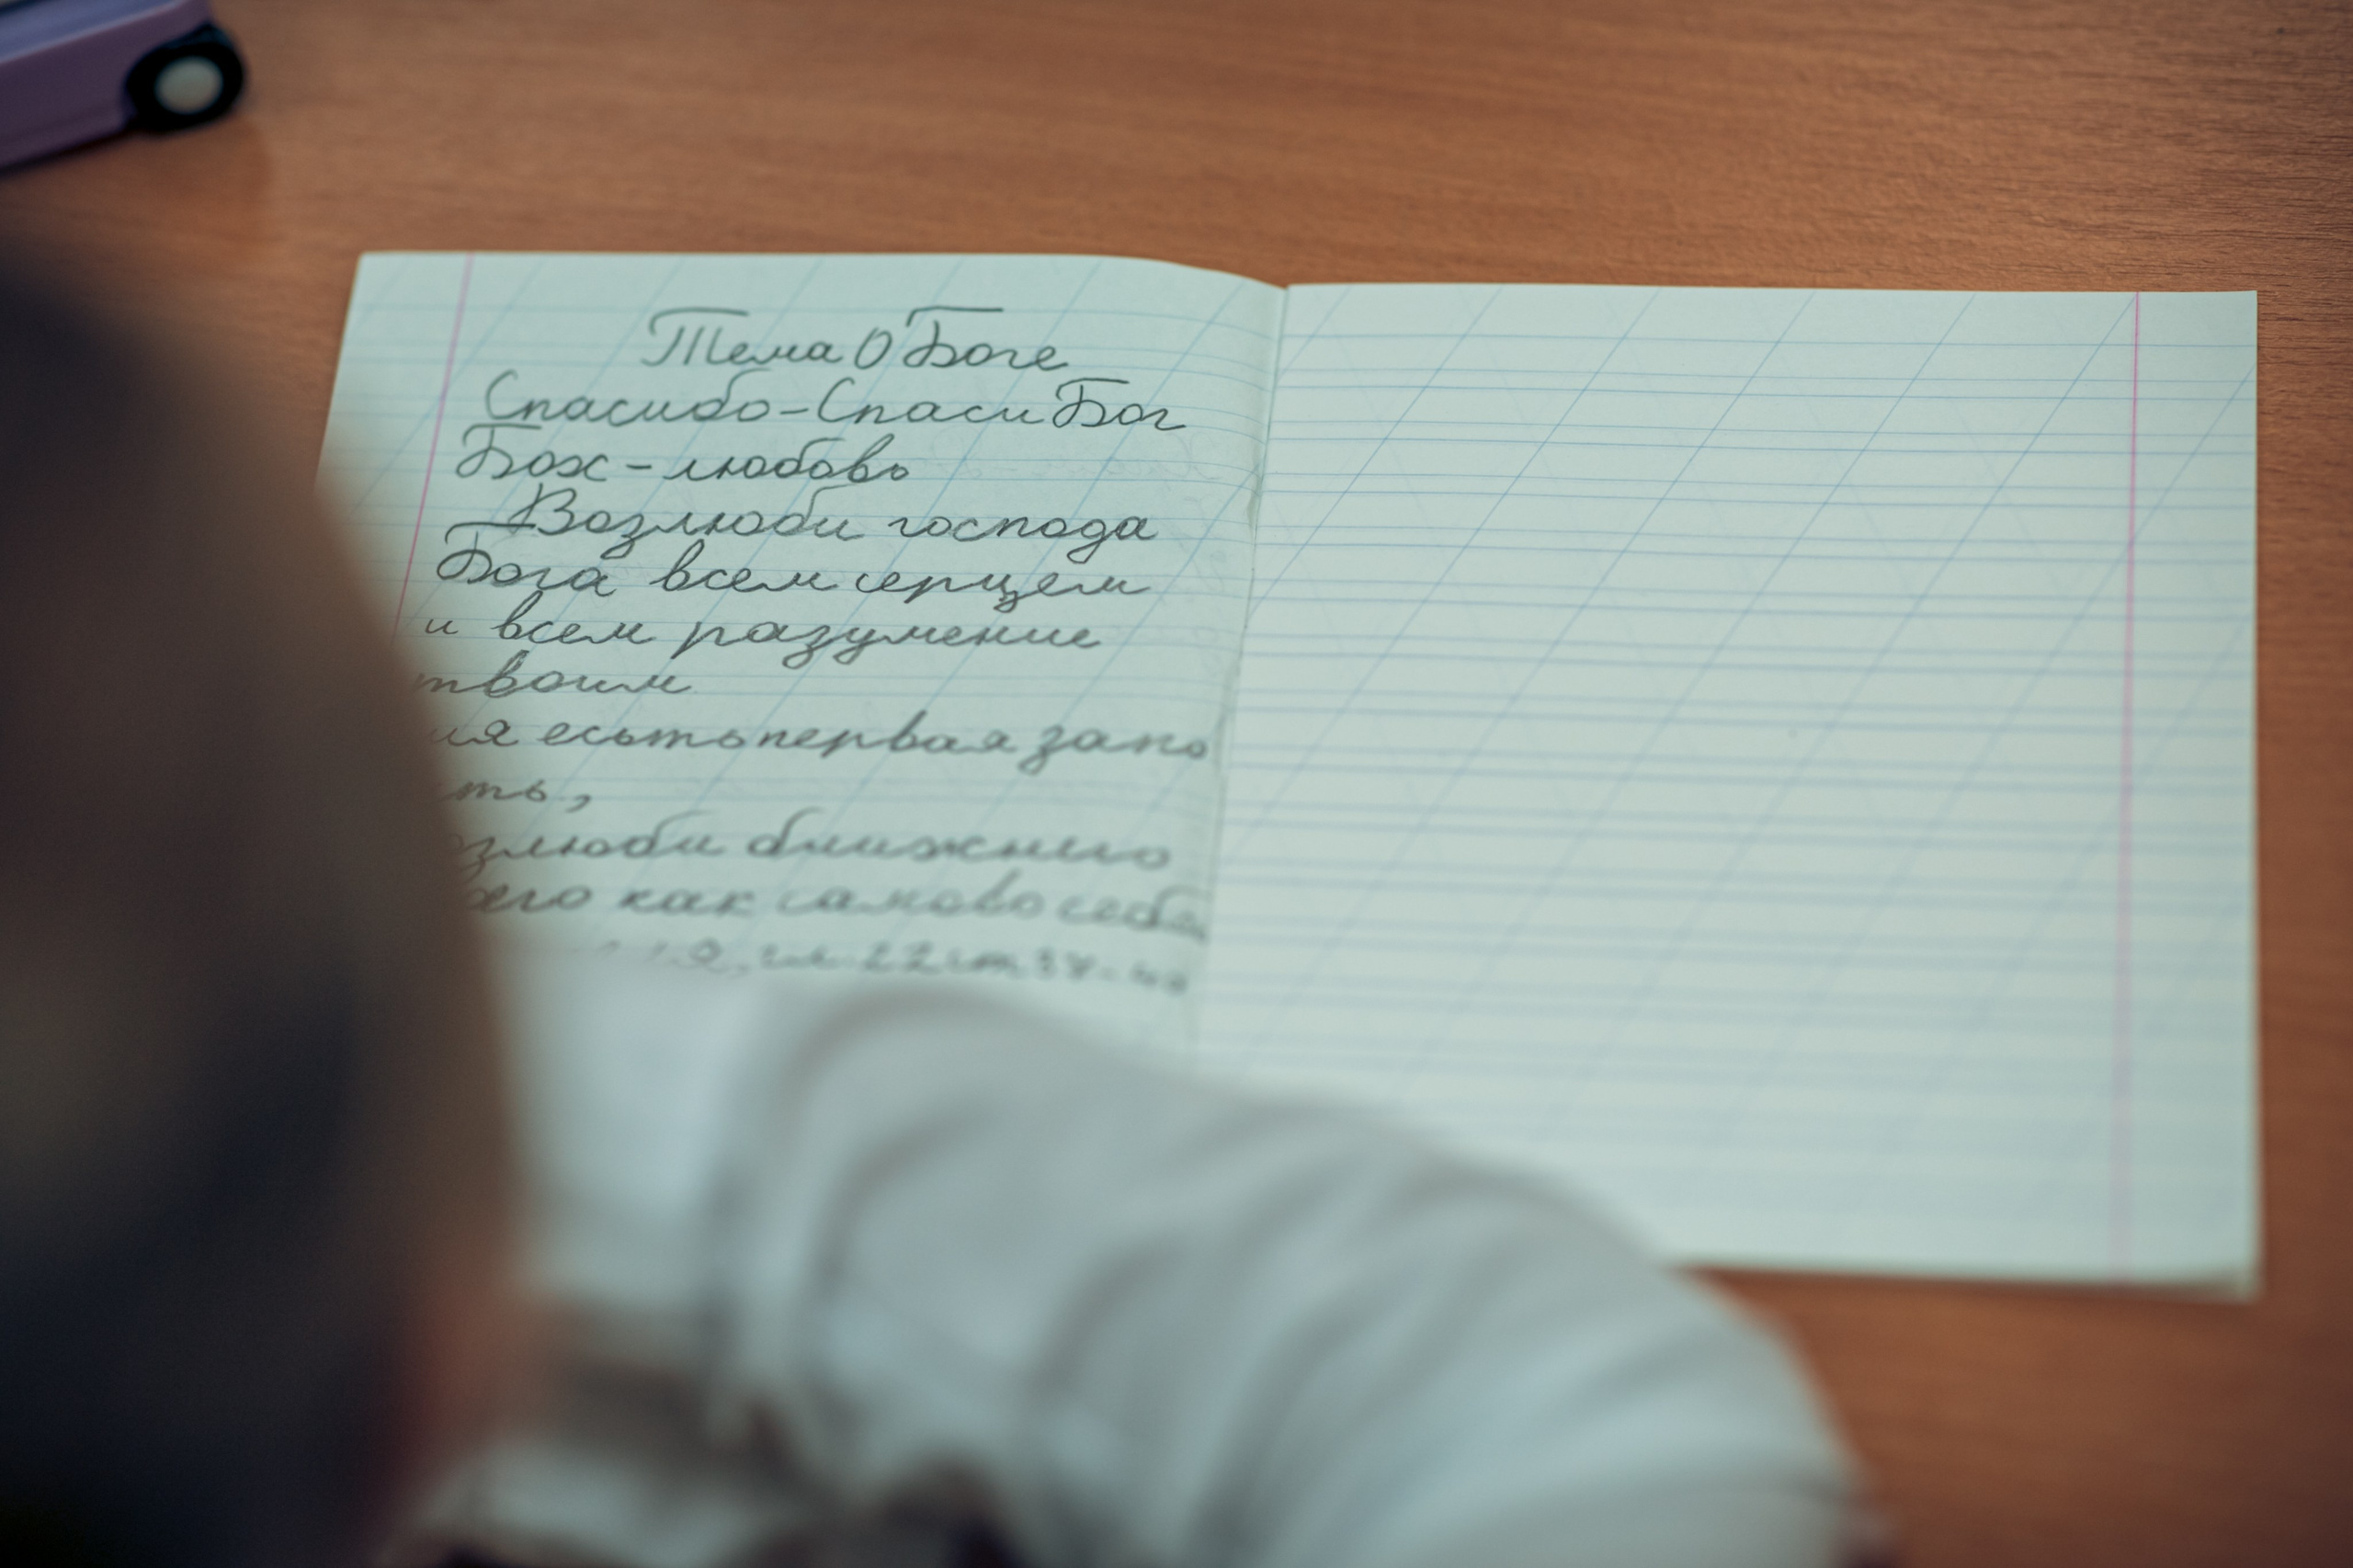 Тема О Боге
Спасибо-Спаси Бог
Бох-любовь
Возлюби господа
Бога всем серцем
и всем разумение
твоим
ия есьть первая запо
сть,
озлюби ближнего
оего как самово себя
гл 22 ст 37-40